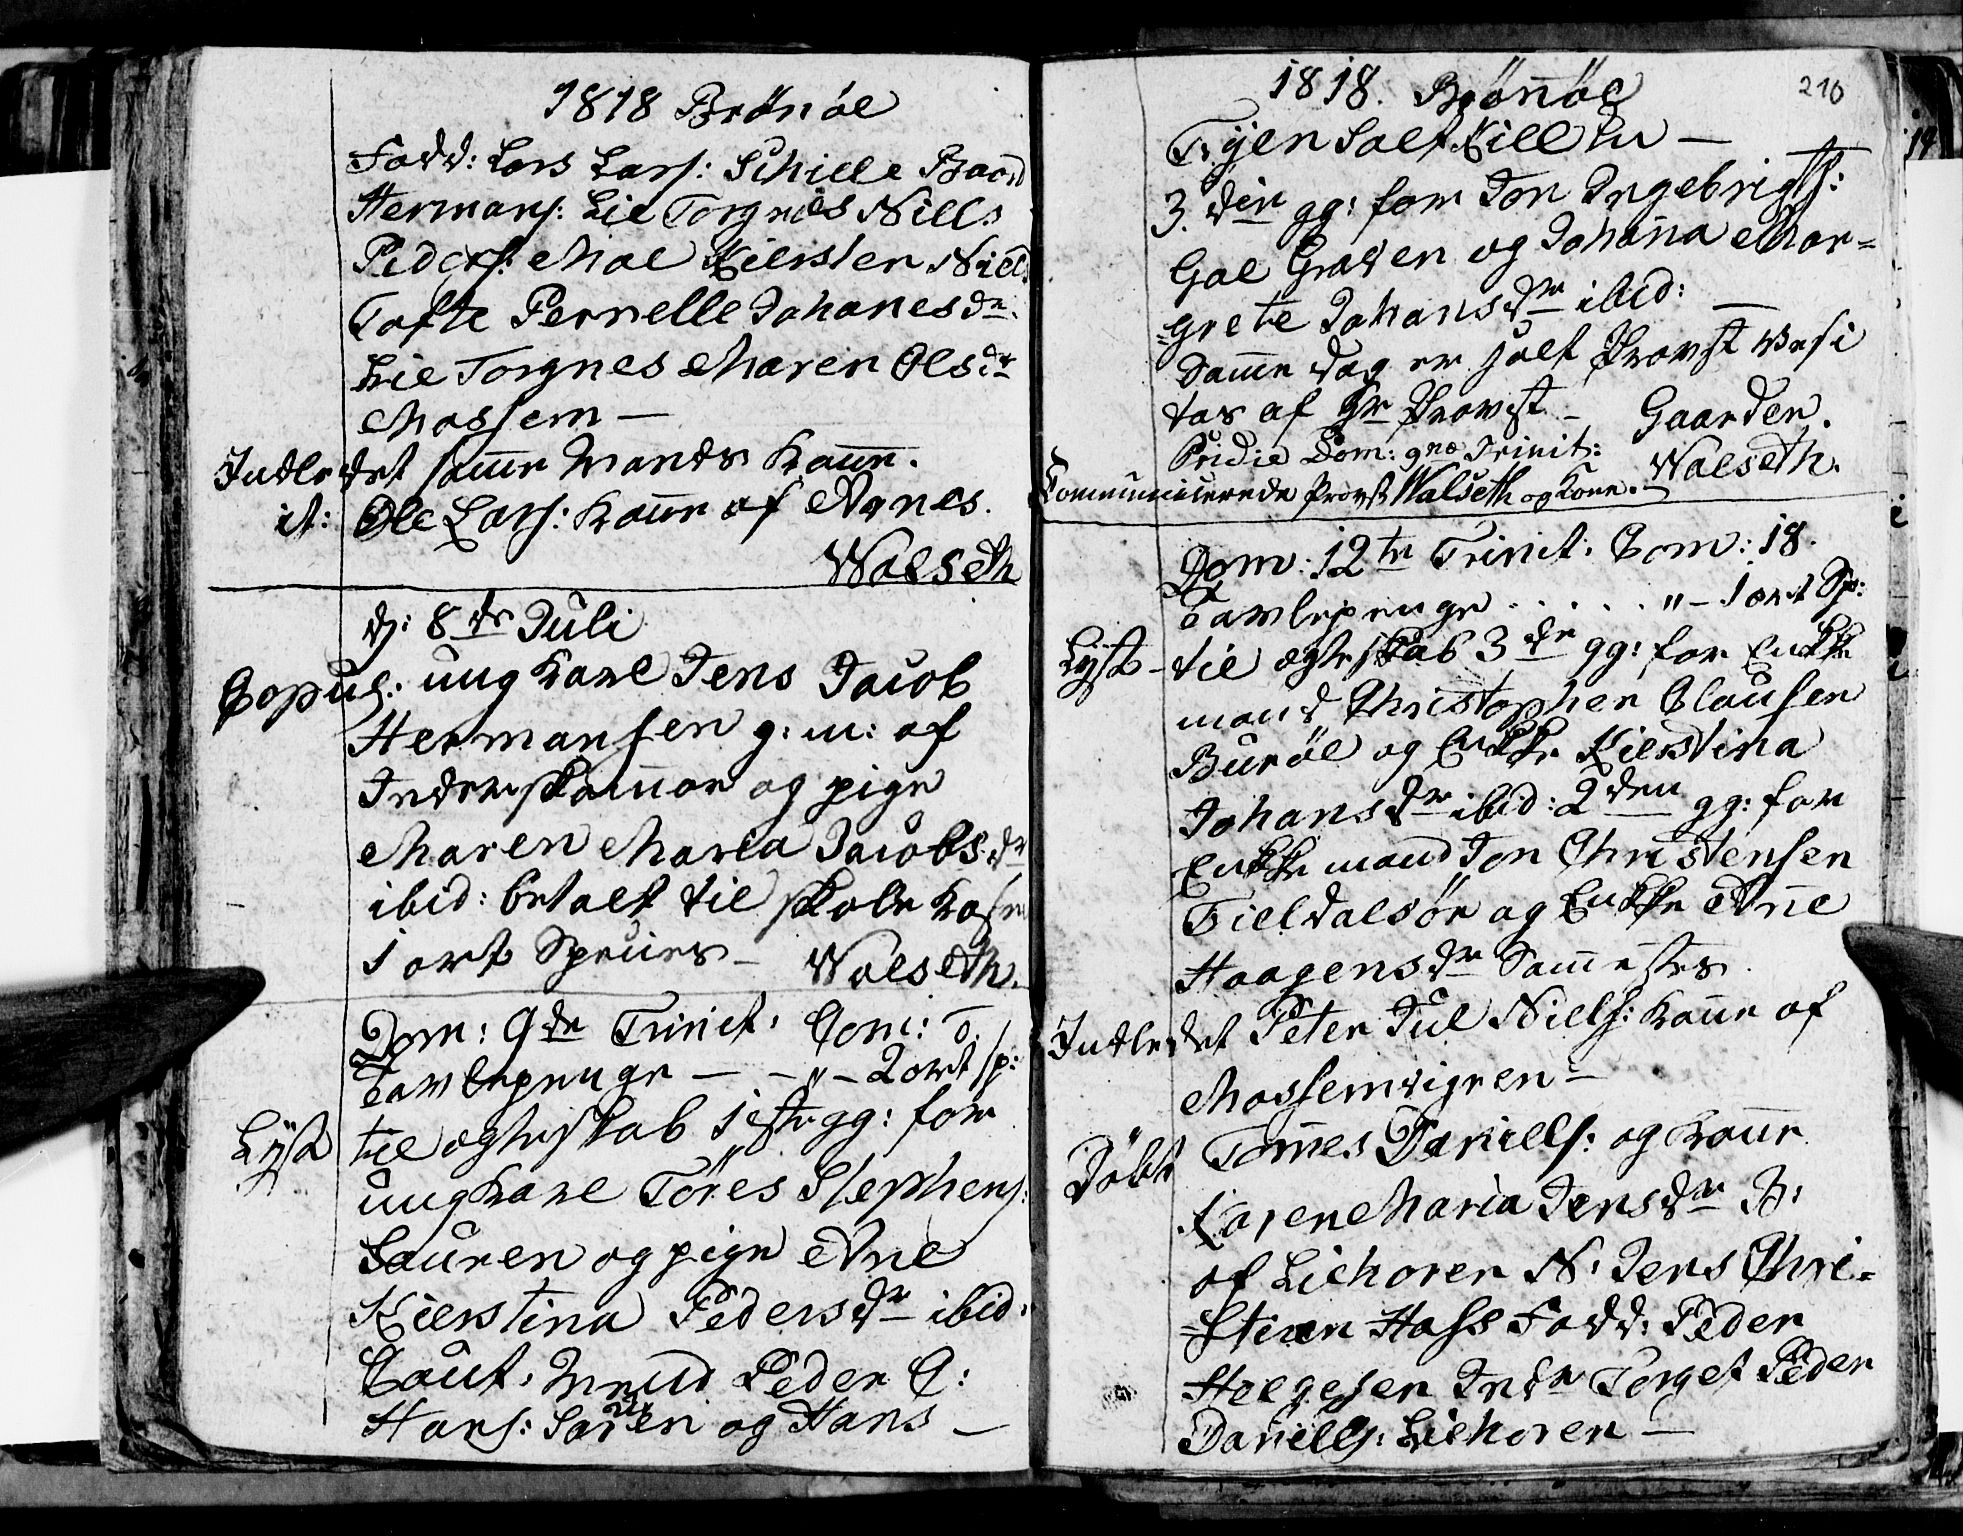 1818 Brönöe
Fadd: Lars Lars: Schille Baard
Hermans: Lie Torgnes Niels
Peders: Moe Kiersten Niels
Tofte Pernelle Johanesdr
Lie Torgnes Maren Olsdr
Mossem —
Indledet samme Mands Kone.
it: Ole Lars: Kone af Agnes.
Walseth
d: 8de Juli
Copul: ung Karl Jens Jacob
Hermansen g: m: af
Inderskamoe og pige
Maren Maria Jacobsdr
ibid: betalt til skole Kassen
1 ort Species — Walseth.
Dom: 9de Trinit: Com: 0.
Tavlepenge — - „ - 2 ort sp:
Lyst til ægteskab 1ste gg: for
ungkarl Töres Stephens:
Sauren og pige Ane
Kierstina Pedersdr ibid:
Caut: Peder C:
Hans: Saren og Hans —
1818. Brönöe 210
Tilrem —
3die gg: for Jon Ingebrigts:
Graven og Johana Mar=
=grete Johansdr ibid: —
Samme dag er holt Provst Visi
tas af Hr Provst — Gaarder.
Pridie Dom: 9na Trinit: Walseth.
Communicerede Provst Walseth og Kone.
Dom: 12te Trinit: Com: 18.
Tavlepenge . . . . . „ - 1 ort Sp:
Lyst - til ægteskab 3die gg: for Enke
mand Christopher Clausen
Buröe og Enke Kierstina
Johansdr ibid: 2den gg: for
Enkemand Jon Christensen
Tieldalsör og Enke Ane
Haagensdr Sammesteds.
Indledet Peter Jul Niels: Kone af
Mossemvigen —
Döbt Tomes Daniels: og Kone
Karen Maria Jensdr B:
af Liehoren N: Jens Chri=
=stian Hass Fadd: Peder
Helgesen Indr Torget Peder
Daniels: Liehoren —